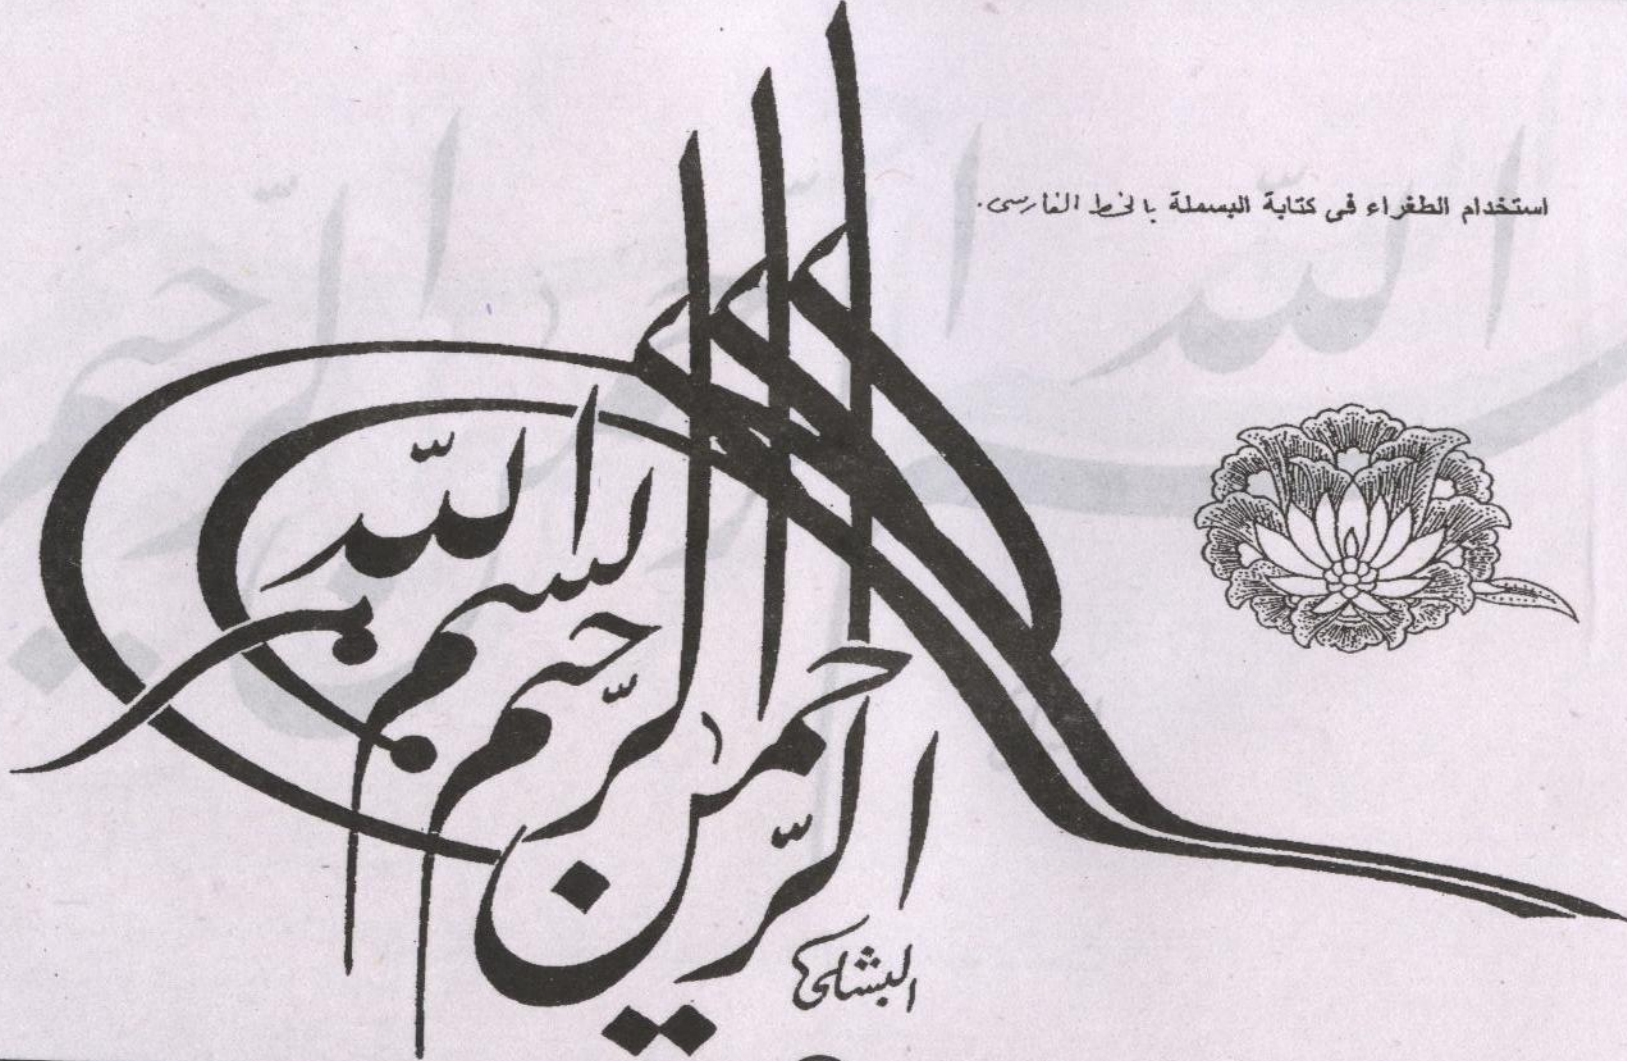 استخدام الطغراء فى كتابة البسملة بالخط الفارسى.
بسم الله
الرّحمن
الرّحيم